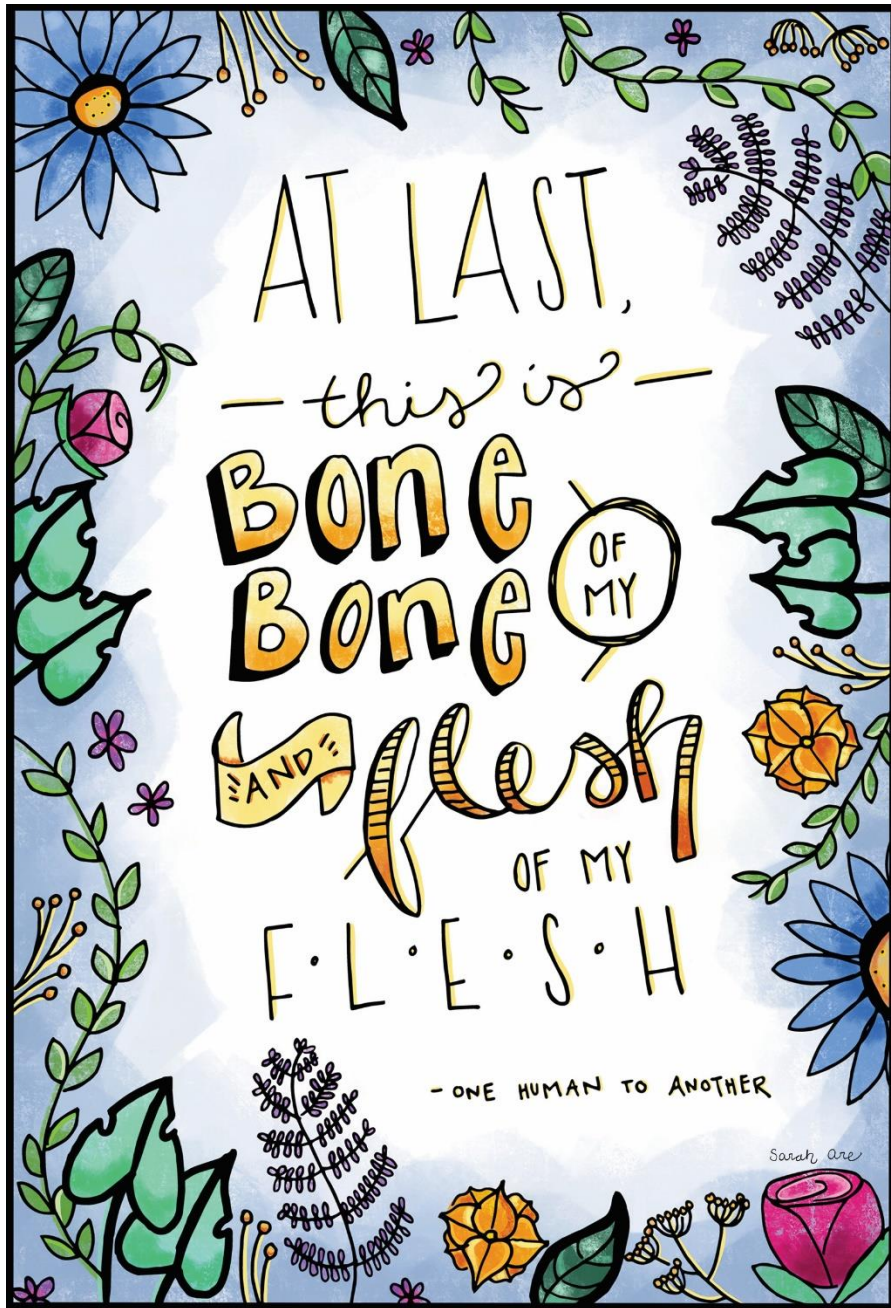 AT LAST,
— this is —
Bone OF MY
Bone
AND flesh
OF MY
F·L·E·S·H
- ONE HUMAN TO ANOTHER
Sarah Are